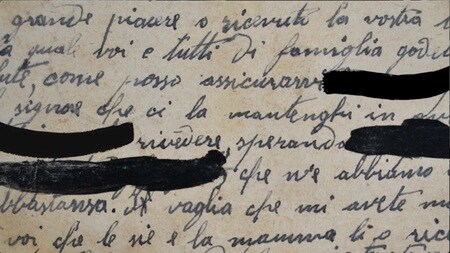 grande piacere o ricevute la vostra
quale voi e tutti di famiglia godete
come posso assicurarvi
signore che ci la mantenghi in
rivedere, sperando
che n'e abbiamo
abbastansa. vaglia che mi avete
voi che le sie e la mamma li o